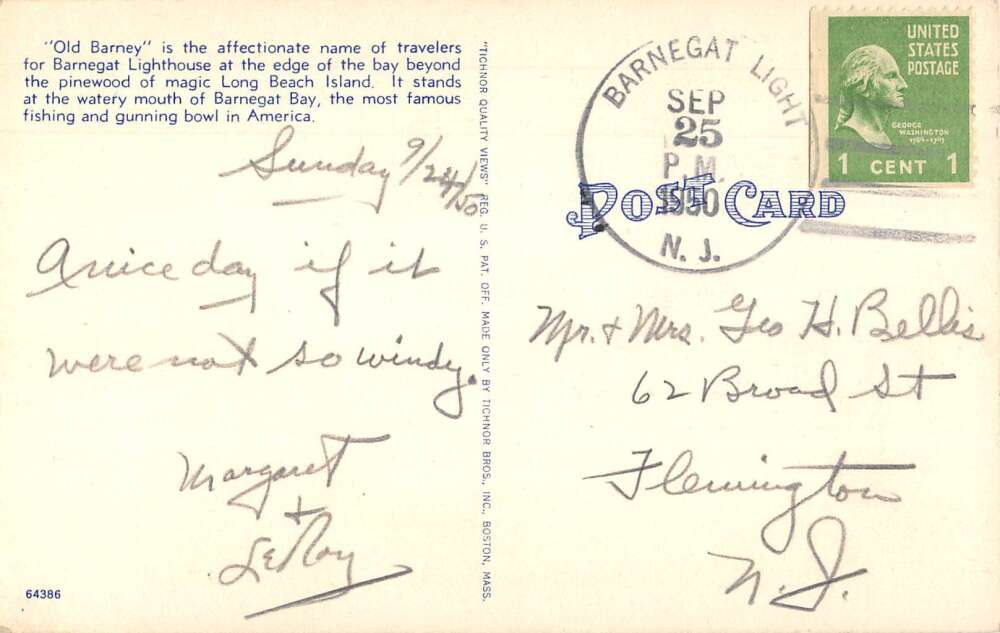 "Old Barney" is the affectionate name of travelers
for Barnegat Lighthouse at the edge of the bay beyond
the pinewood of magic Long Beach Island. It stands
at the watery mouth of Barnegat Bay, the most famous
fishing and gunning bowl in America.
Sunday 9/24/50
A nice day if it
were not so windy.
Margaret
+
LeRoy
64386
"TICHNOR QUALITY VIEWS" REG. U. S. PAT. OFF. MADE ONLY BY TICHNOR BROS., INC., BOSTON, MASS.
BARNEGAT LIGHT
SEP
25
P.M.
1950
N. J.
UNITED
STATES
POSTAGE
GEORGE
WASHINGTON
1789-1797
1 CENT 1
POST CARD
Mr. + Mrs. Geo H. Bellis
62 Broad St
Flemington
N. J.